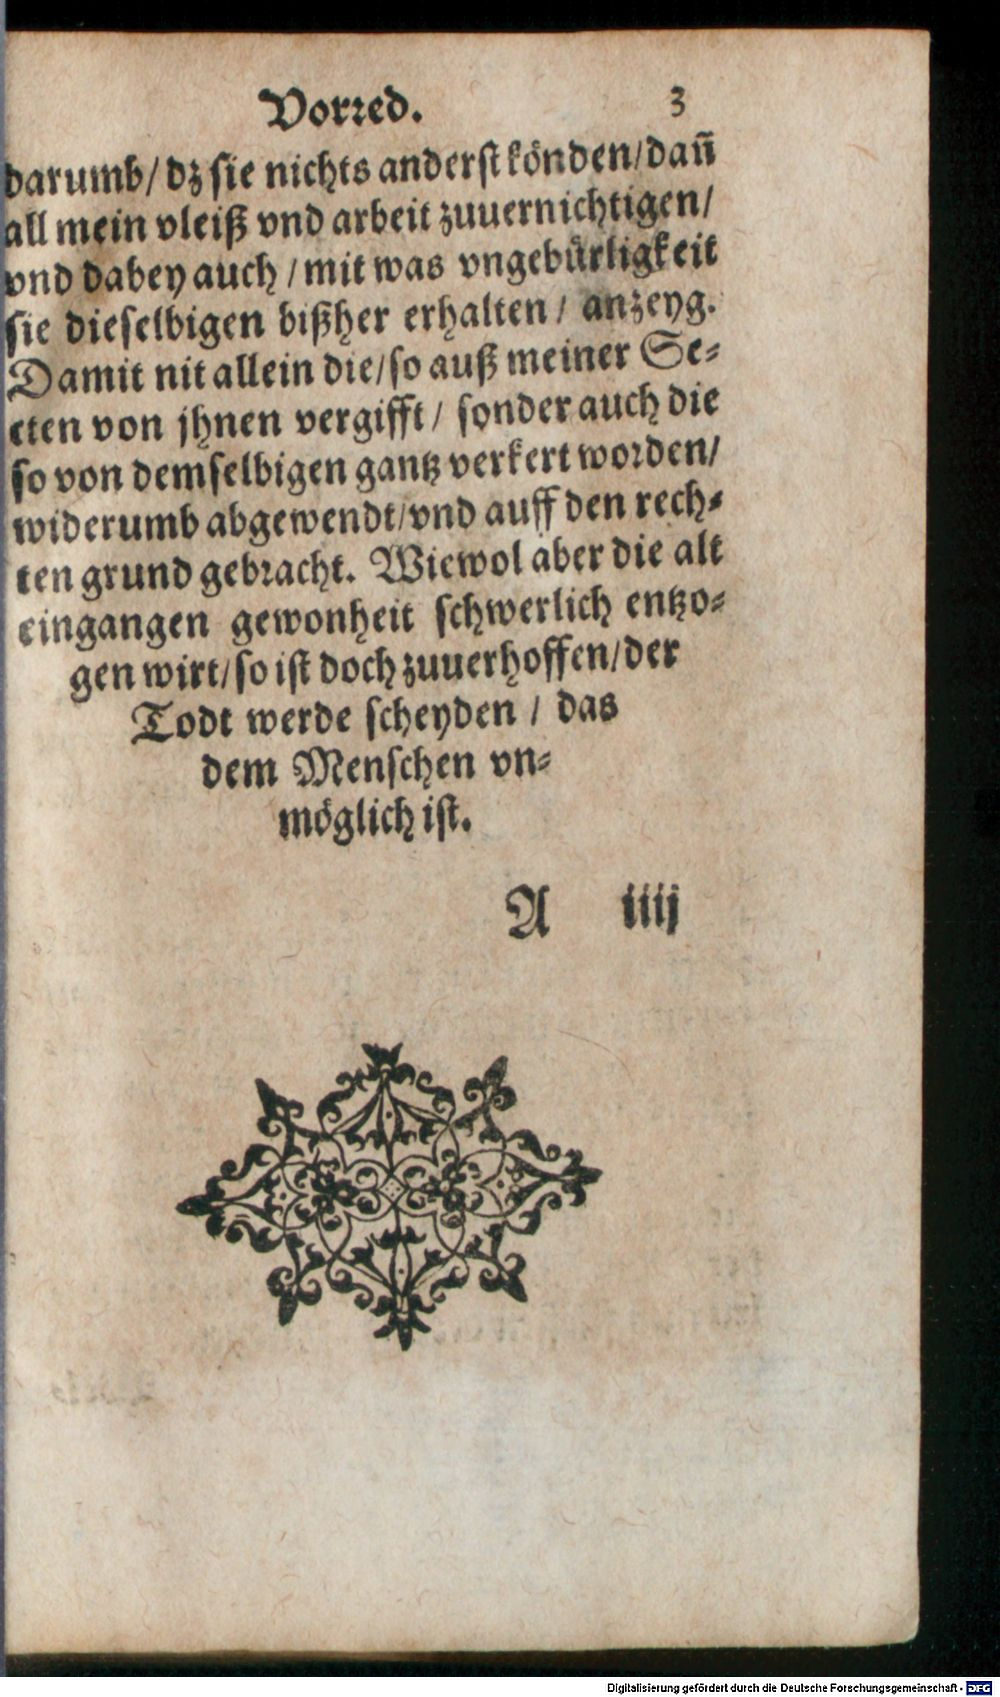 Vorꝛed. 3
darumb/ dz sie nichts anderst könden/ dañ
all mein vleiß vnd arbeit zuuernichtigen/
vnd dabey auch / mit was vngebürligkeit
sie dieselbigen bißher erhalten / anzeyg.
Damit nit allein die/ so auß meiner Se⸗
cten von jhnen vergifft / sonder auch die
so von demselbigen gantz verkert woꝛden/
widerumb abgewendt/ vnd auff den rech⸗
ten grund gebꝛacht. Wiewol aber die alt
eingangen gewonheit schwerlich entzo⸗
gen wirt/ so ist doch zuuerhoffen/ der
Todt werde scheyden / das
dem Menschen vn⸗
möglich ist.
A iiij
Digitalisierung gefördert durch die Deutsche Forschungsgemeinschaft - DFG